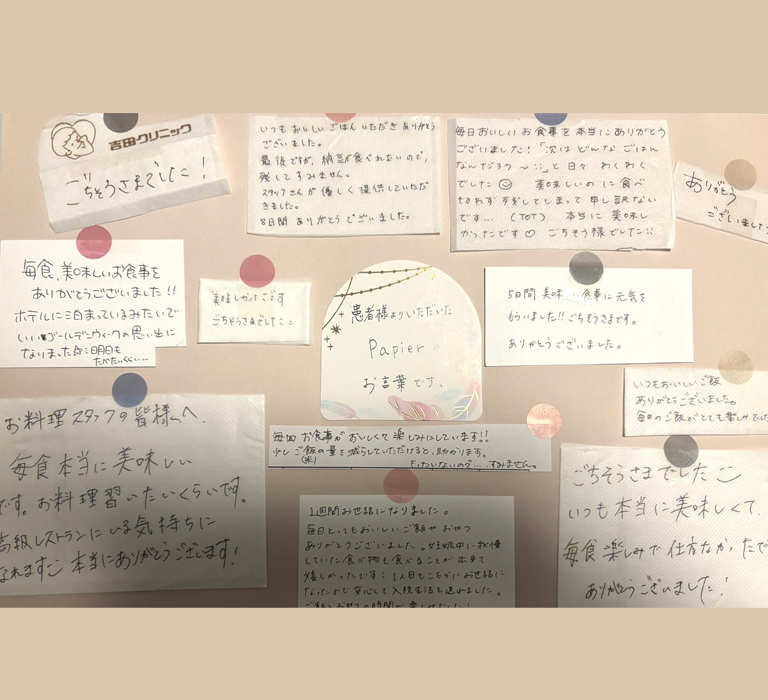 吉田クリニック
ごちそうさまでした!
いつもおいしいごはんいただきありがとう
ございました。
最後ですが、納豆が食べれないので、
残してすみません。
スタッフさんが優しく提供していただ
きました。
8日間 ありがとうございました。
毎日おいしいお食事を本当にありがとう
ございました!「次はどんなごはん
なんだろう〜:)」と日々わくわく
でした☺ 美味しいのに食べ
きれず残してしまって申し訳ない
です…(ToT) 本当に美味し
かったです♡ ごちそう様でした!!
ありがとう
ございました
毎食、美味しいお食事を
ありがとうございました!!
ホテルに泊まっているみたいで
いいゴールデンウィークの思い出に
なりました☆明日も
たべたいくらい…
美味しかったです
ごちそうさまでした。
患者様よりいただいた
Papier
お言葉です。
5日間 美味しい食事に元気を
もらいました!!ごちそうさまです。
ありがとうございました。
いつもおいしいご飯
ありがとうございました。
毎日のご飯がとても楽しみでした
お料理スタッフの皆様へ
毎食本当に美味しい
です。お料理習いたいくらいです。
高級レストランにいる気持ちに
なれます 本当にありがとうございます!
毎回お食事がおいしくて楽しみにしています!!
少しご飯の量を減らしていただけると、助かります。
(米)
もったいないので…すみません。
1週間お世話になりました。
毎日とってもおいしいご飯やおやつ
ありがとうございました。妊娠中に我慢
していた食べ物も食べることが出来て
嬉しかったです! 1人目もこちらにお世話に
なったので安心して入院生活を送れました。
ごちそうさまでした
いつも本当に美味しくて、
毎食楽しみで仕方なかったで
ありがとうございました!